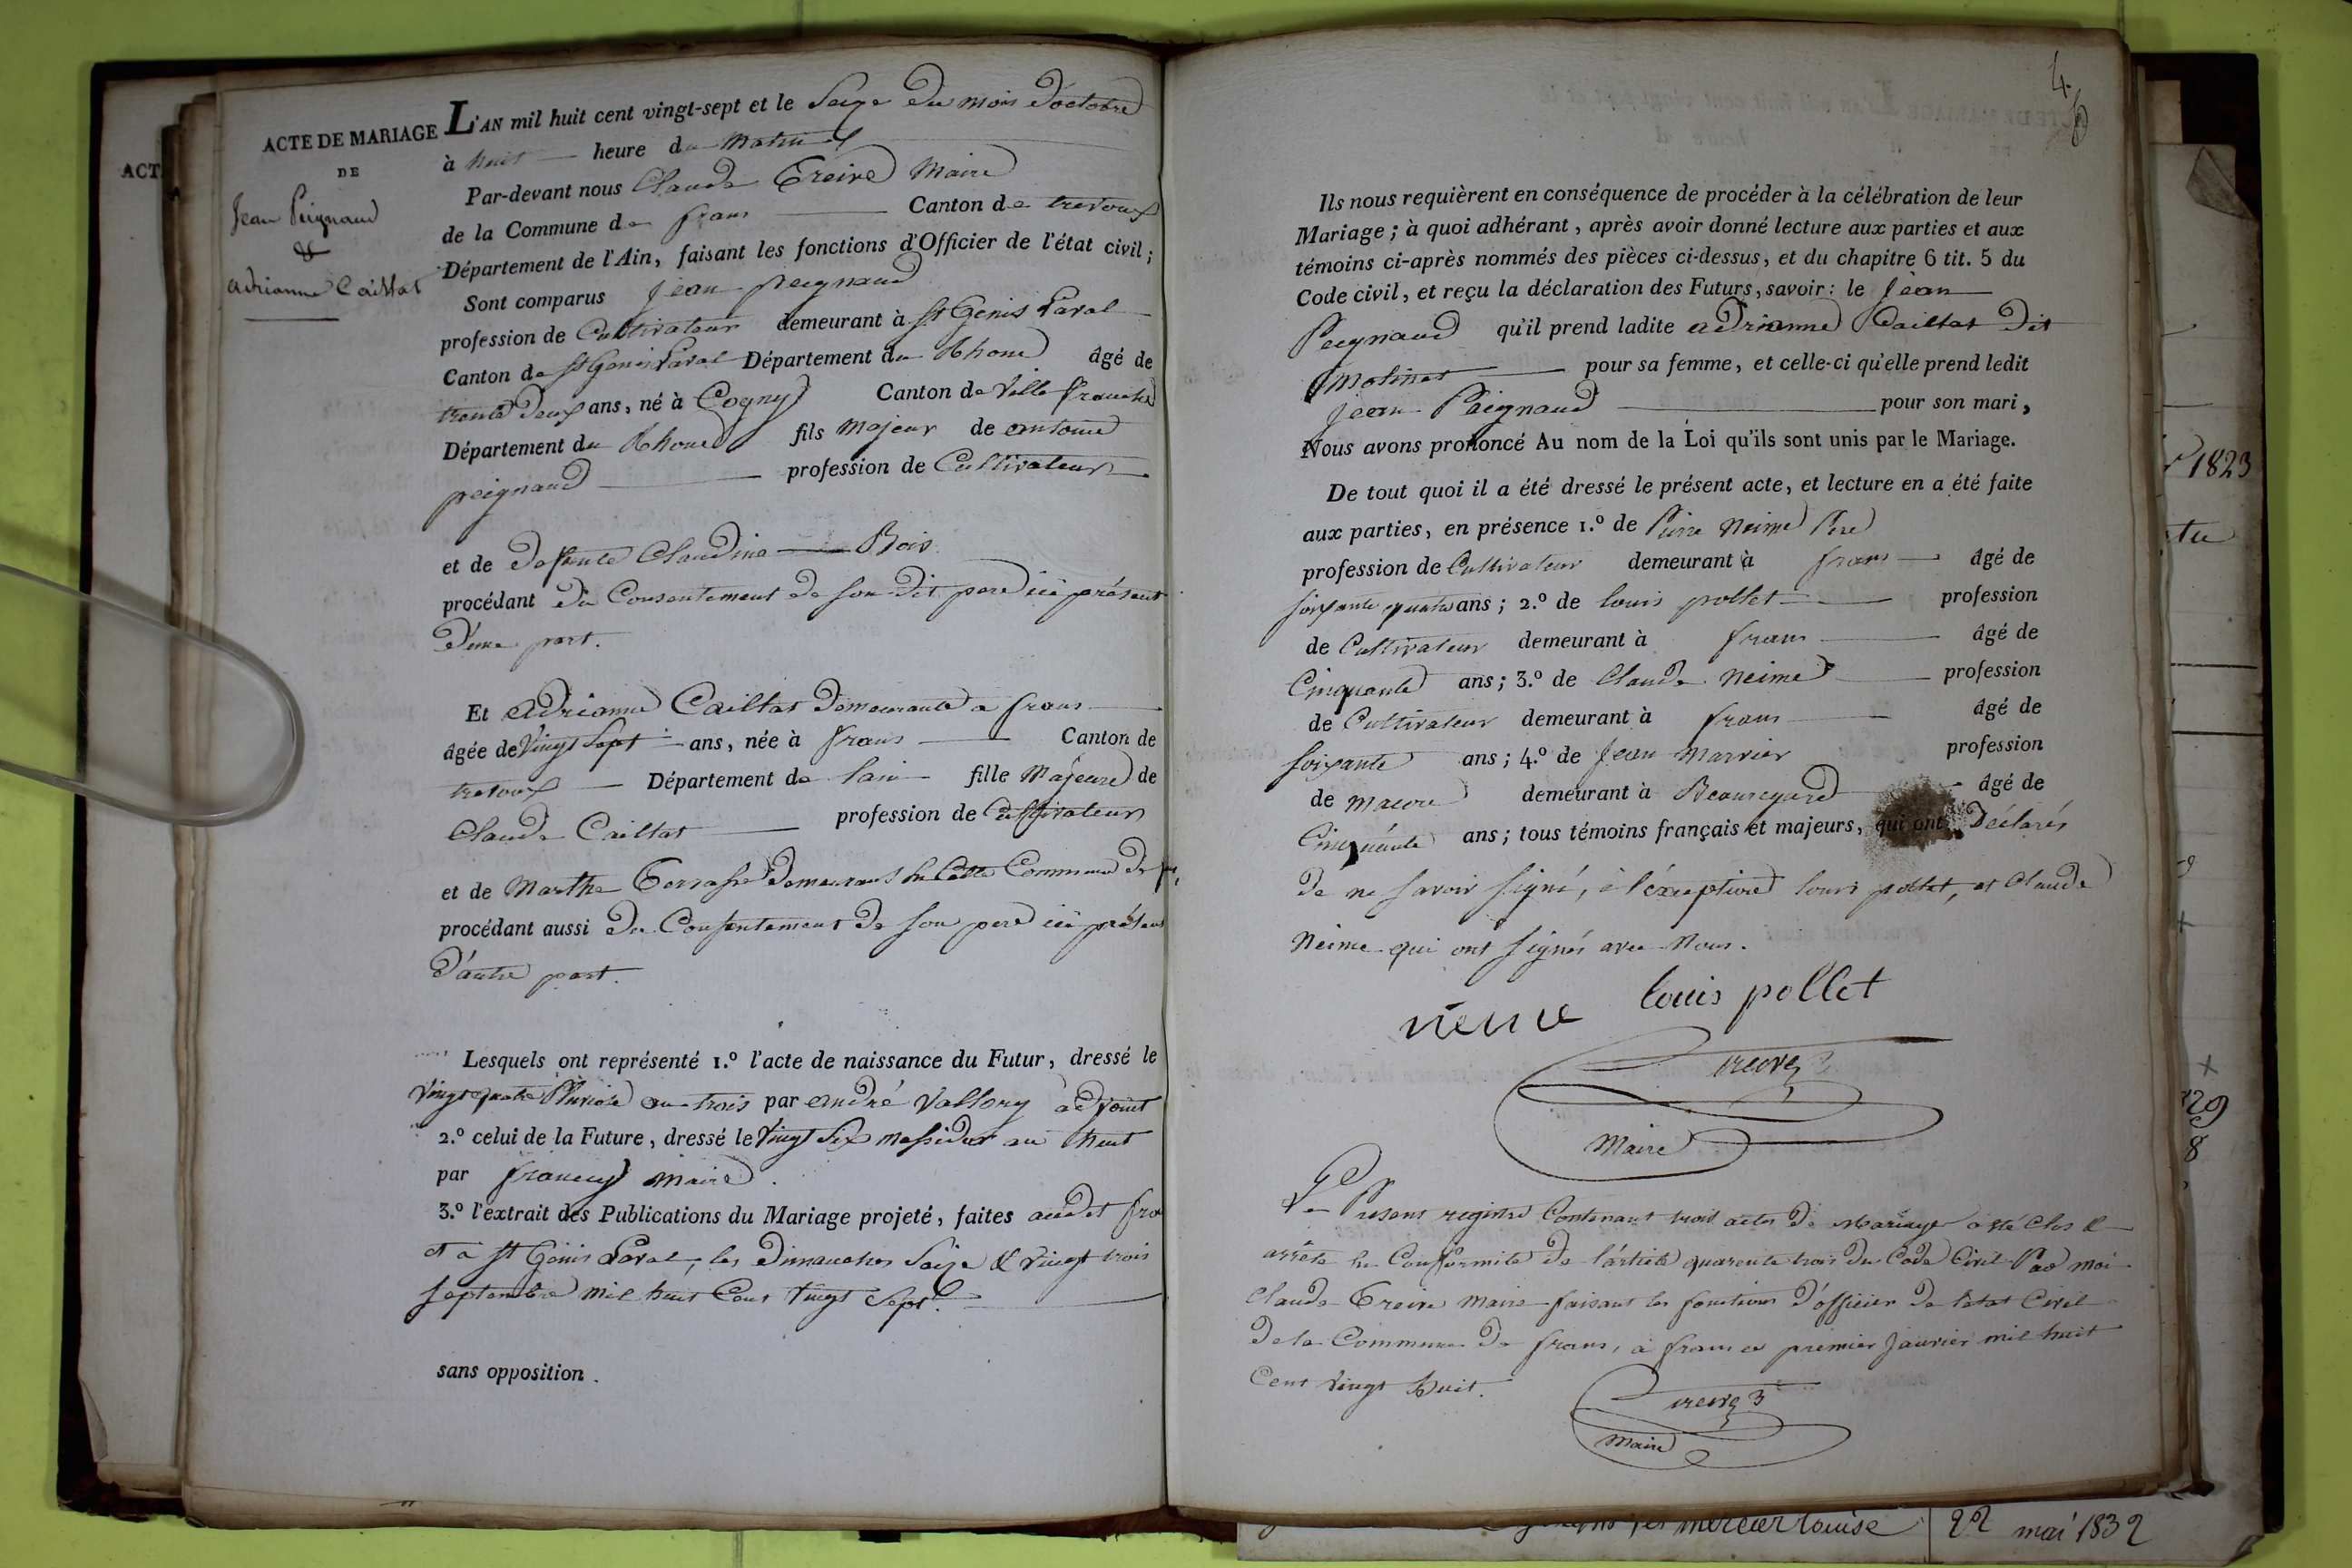 ACT
ACTE DE MARIAGE
DE
Jean Peignaud
&
adrianne Caillat
L'AN mil huit cent vingt-sept et le Seize du mois d'octobre
à huit heure du Matin
Par-devant nous Claude Treive Maire
de la Commune de frans Canton de trevoux
Département de l'Ain, faisant les fonctions d'Officier de l'état civil;
Sont comparus Jean peignaud
profession de Cultivateur demeurant à St Genis Laval
Canton de St Genis Laval Département du Rhone âgé de
trente deux ans, né à Cogny Canton de Ville franche
Département du Rhone fils Majeur de antoine
peignaud profession de Cultivateur
et de defunte Claudine Bois
procédant du Consentement de son dit pere ici présent
d'une part.
Et adrianne Caillat demeurante a frans
âgée de Vingt Sept ans, née à frans Canton de
trevoux Département de lain fille Majeure de
Claude Caillat profession de Cultivateur
et de Marthe demeurant en Cette Commune de
procédant aussi du Consentement de son pere ici présent
D'autre part.
Lesquels ont représenté 1.º l'acte de naissance du Futur, dressé le
Vingt quatre Pluviose an trois par andré Vallory adjoint
2.º celui de la Future, dressé le Vingt Six messidor an huit
par francey maire.
3.º l'extrait des Publications du Mariage projeté, faites audit fra
et a St Génis Laval, les dimanches Seize & vingt trois
Septembre mil huit Cent Vingt Sept.
sans opposition.
4.
Ils nous requièrent en conséquence de procéder à la célébration de leur
Mariage; à quoi adhérant, après avoir donné lecture aux parties et aux
témoins ci-après nommés des pièces ci-dessus, et du chapitre 6 tit. 5 du
Code civil, et reçu la déclaration des Futurs, savoir: le Jean
Peignaud qu'il prend ladite adrianne Caillat dit
Molinet pour sa femme, et celle-ci qu'elle prend ledit
Jean Peignaud pour son mari,
Nous avons prononcé Au nom de la Loi qu'ils sont unis par le Mariage.
De tout quoi il a été dressé le présent acte, et lecture en a été faite
aux parties, en présence 1.º de Pierre Neime Pere
profession de Cultivateur demeurant à frans âgé de
soixante quatre ans; 2.º de louis pollet profession
de Cultivateur demeurant à frans âgé de
Cinquante ans; 3.º de Claude Neime profession
de Cultivateur demeurant à frans âgé de
soixante ans; 4.º de Jean Marrier profession
de macon demeurant à Beauregard âgé de
Cinquante ans; tous témoins français et majeurs, qui ont Déclarés
de ne savoir signé, à l'exeptione louis pollet, et Claude
Neime qui ont signés avec Nous.
neime louis pollet
treive
Maire
Le Present registre Contenant trois actes de Mariage a été Clos &
arrêté en Conformité de l'article quarente trois du Code Civil Par moi
Claude Treive Maire faisant les fonctions d'officier de l'etat Civil
de la Commune de frans, à frans ce premier Janvier mil huit
Cent Vingt huit.
treive
Maire
1823
mercier louise 22 mai 1832